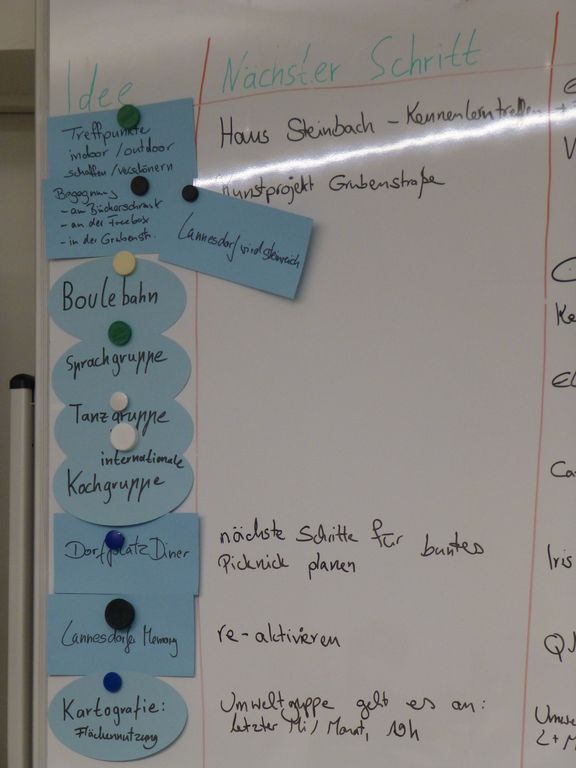 Idee
Nächster Schritt
Treffpunkte
indoor/outdoor
schaffen/verschönern
Haus Steinbach - Kennenlerntreffen
Begegnung
- am Bücherschrank
- an der Freebox
- in der Grubenstr.
Kunstprojekt Grubenstraße
Lannesdorf wird steinreich
Boulebahn
Sprachgruppe
Tanzgruppe
internationale
Kochgruppe
Dorfplatz Diner
nächste Schritte für buntes
Picknick planen
Iris
Lannesdorfer Memory
re-aktivieren
Kartografie:
Flächennutzung
Umweltgruppe geht es an:
letzter Mi/Monat, 19h